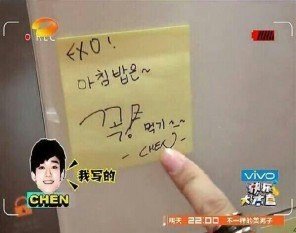 REC
EXO!
아침밥은~
꼭 먹기~
-CHEN-
CHEN
我写的
vivo
快乐大本营
明天 22:00 不一样的美男子